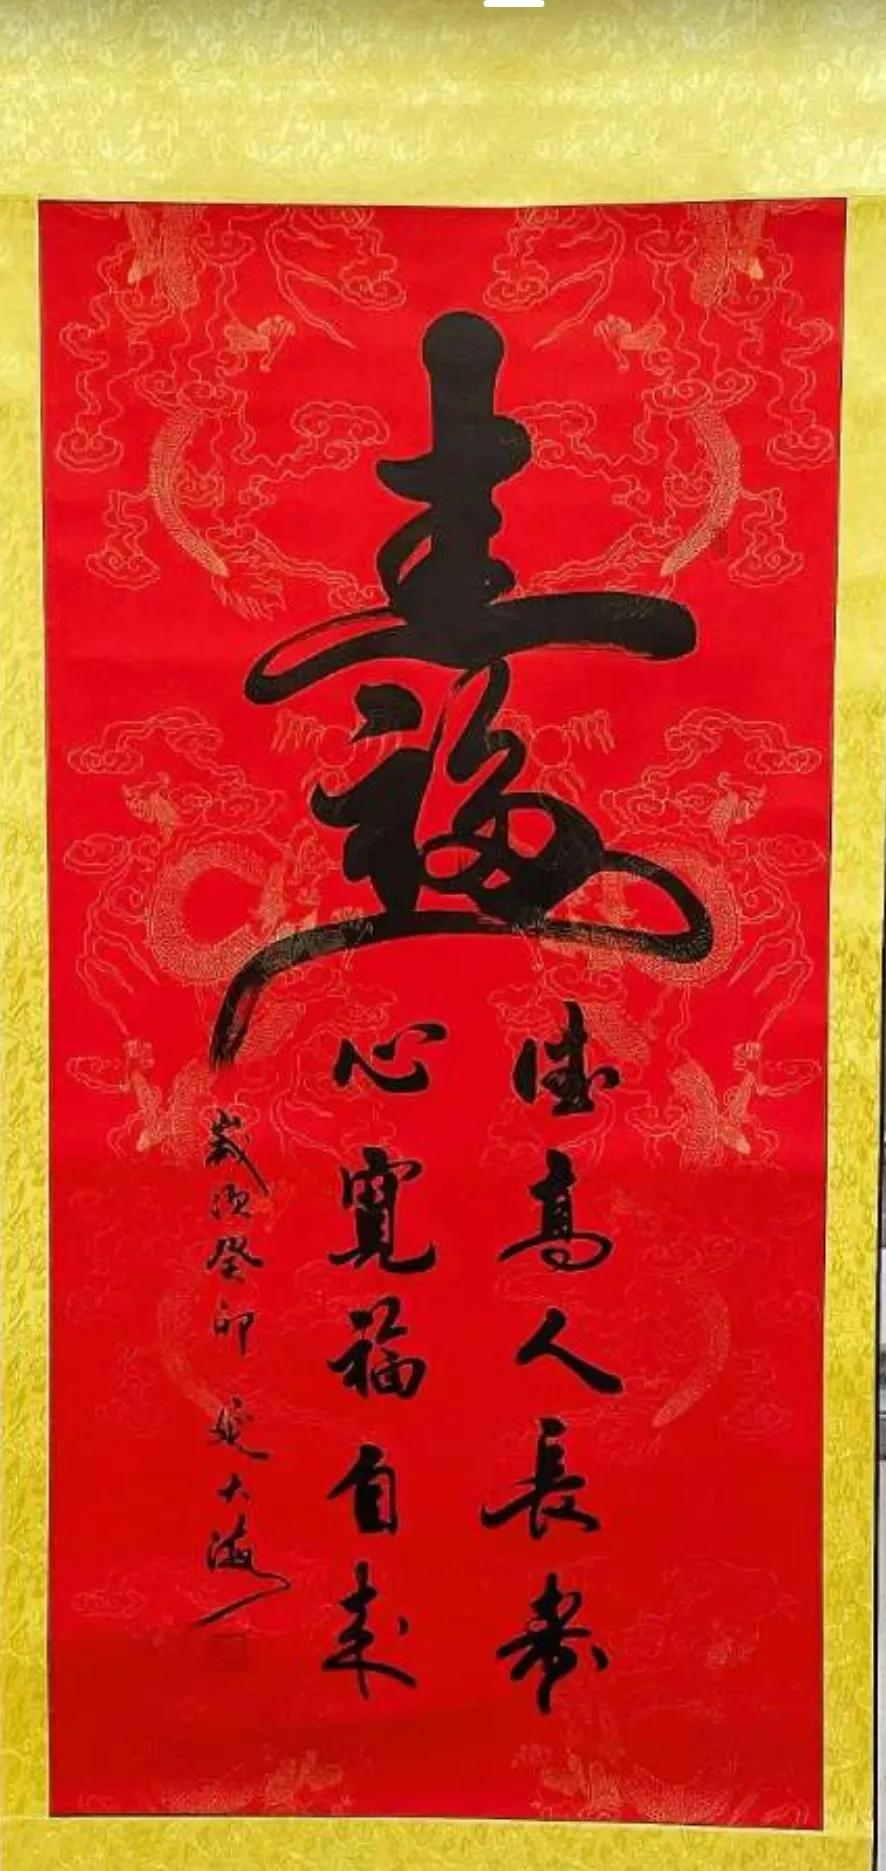 壽福
德高人長壽
心寬福自來
歲次癸卯
大海